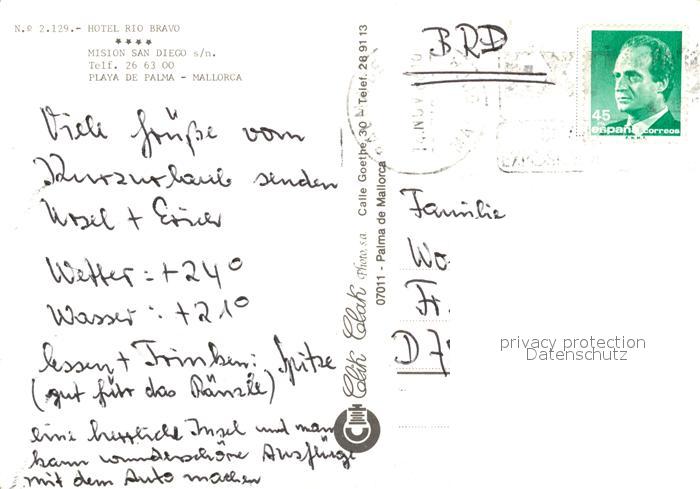 N.º 2.129.- HOTEL RIO BRAVO
★★★★
MISION SAN DIEGO s/n.
Telf. 26 63 00
PLAYA DE PALMA - MALLORCA
Viele Grüße vom
Kurzurlaub senden
Ursel + Erich
Wetter: +24°
Wasser: +21°
Essen + Trinken: Spitze
(gut für das Ränzle)
eine herrliche Insel und man
kann wunderschöne Ausflüge
mit dem Auto machen
Clik Clak Photo, s.a. Calle Goethe, 30 - Telef. 28 91 13
07011 - Palma de Mallorca
BRD
45
PTA
españa correos
Familie
Wo
Fr.
D 7
privacy protection
Datenschutz